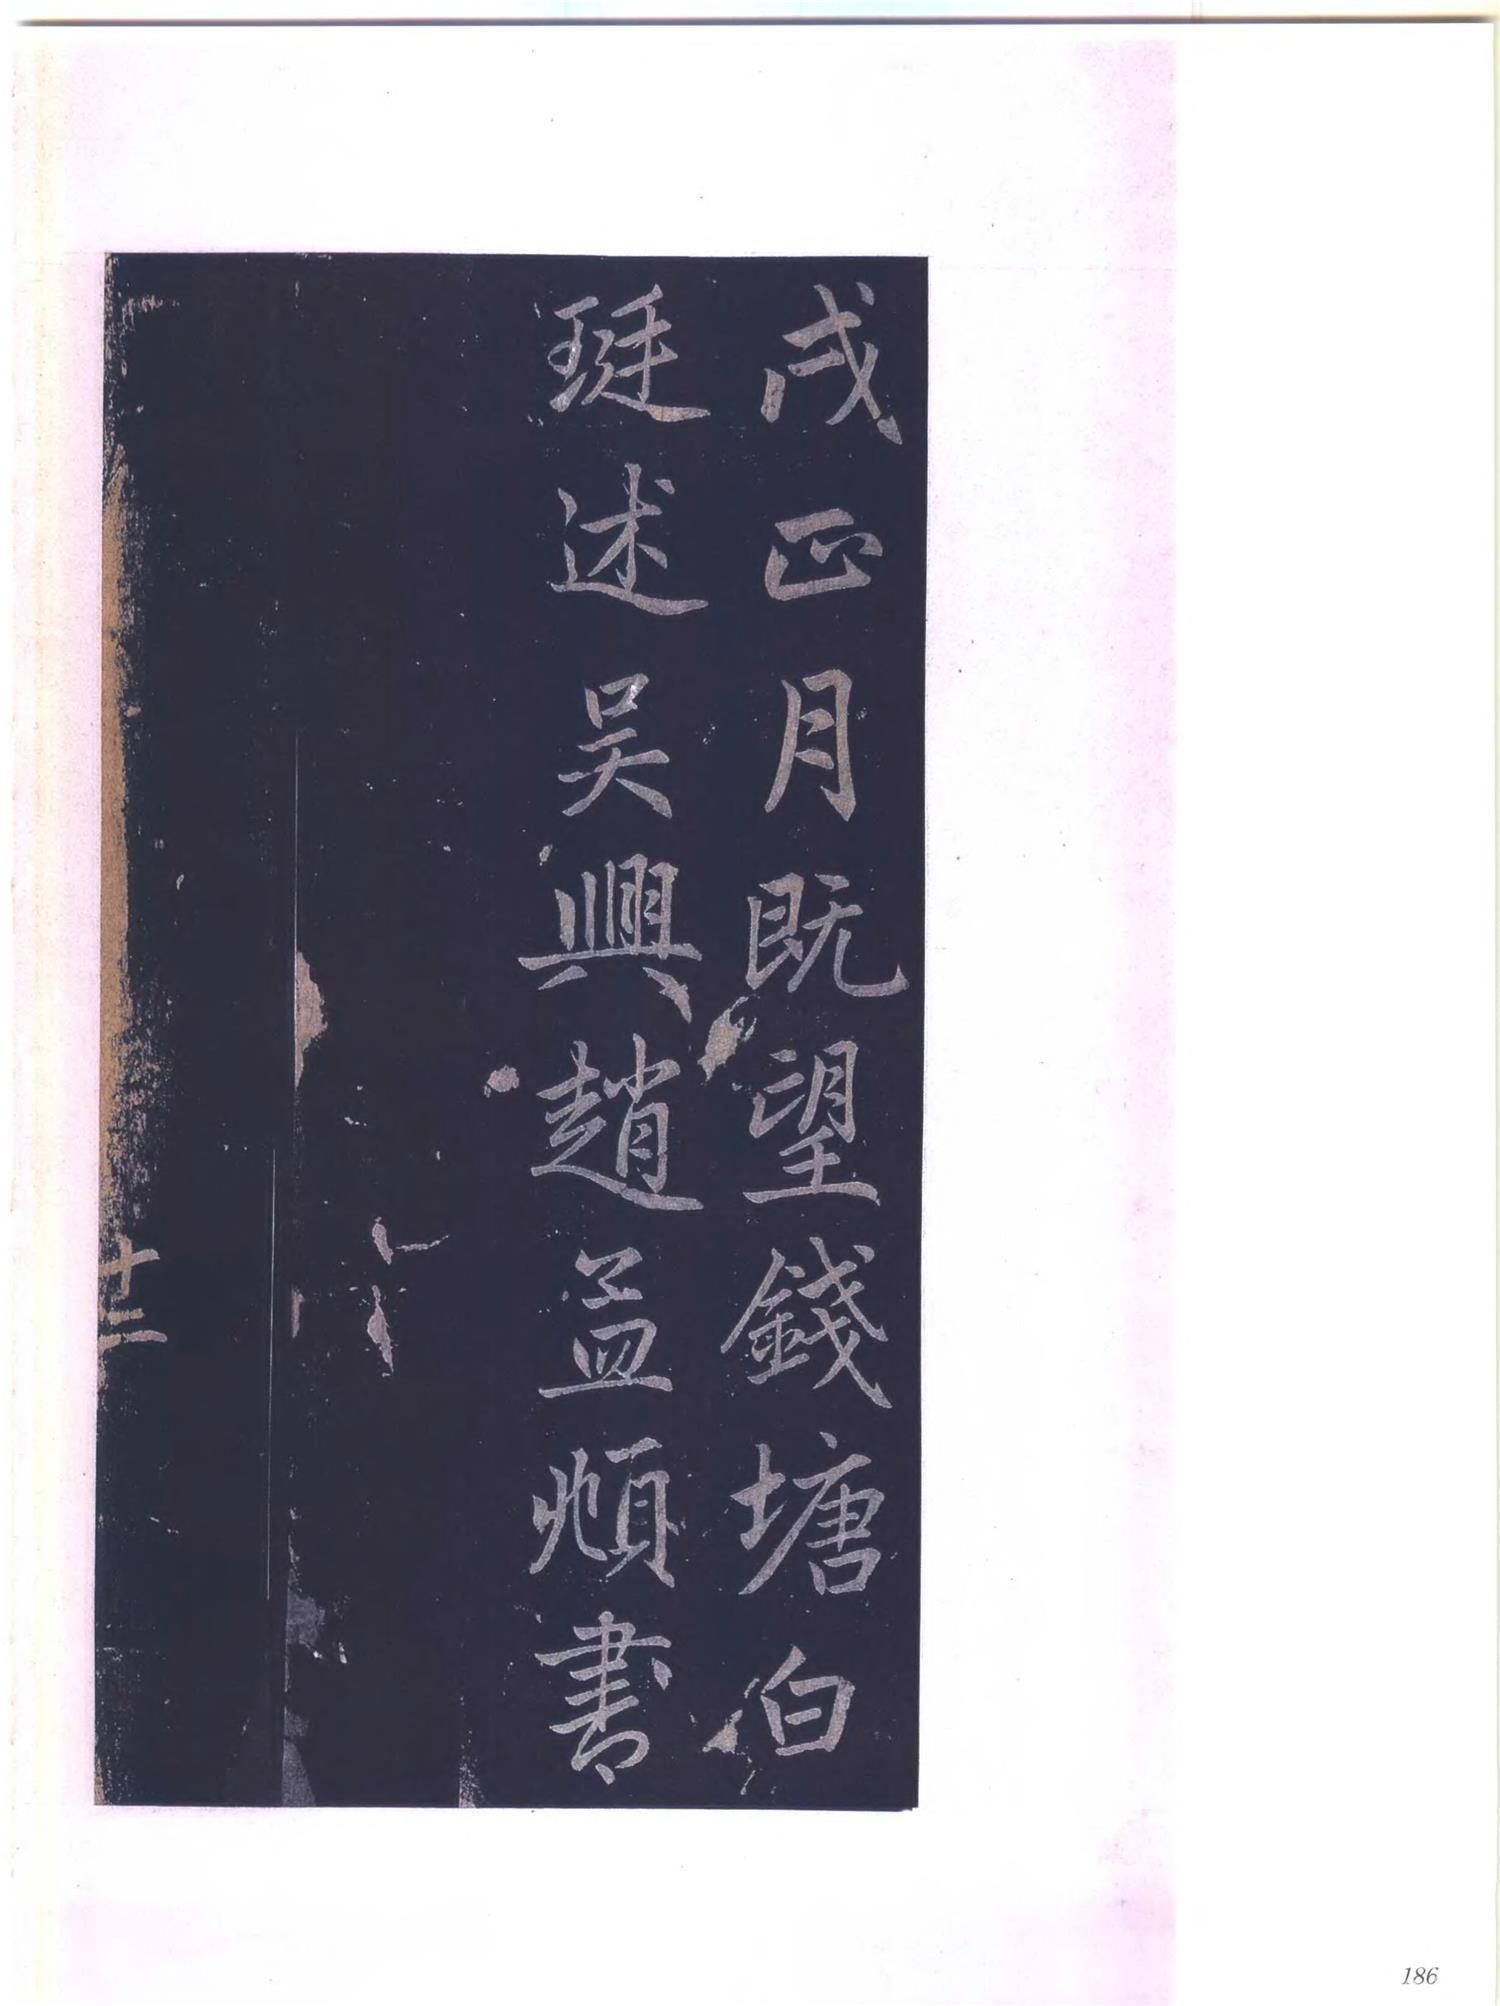 戌正月既望錢塘白
珽述吳興趙孟頫書
十二
186